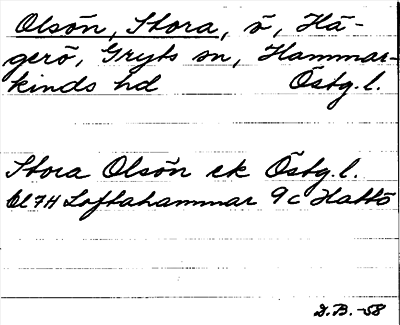 Olsön, Stora, ö, Hä-
gerö, Gryts sn, Hammar-
kinds hd Östg.l.
Stora Olsön ek Östg.l.
Bl 7H Loftahammar 9c Hattö
D.B.-58